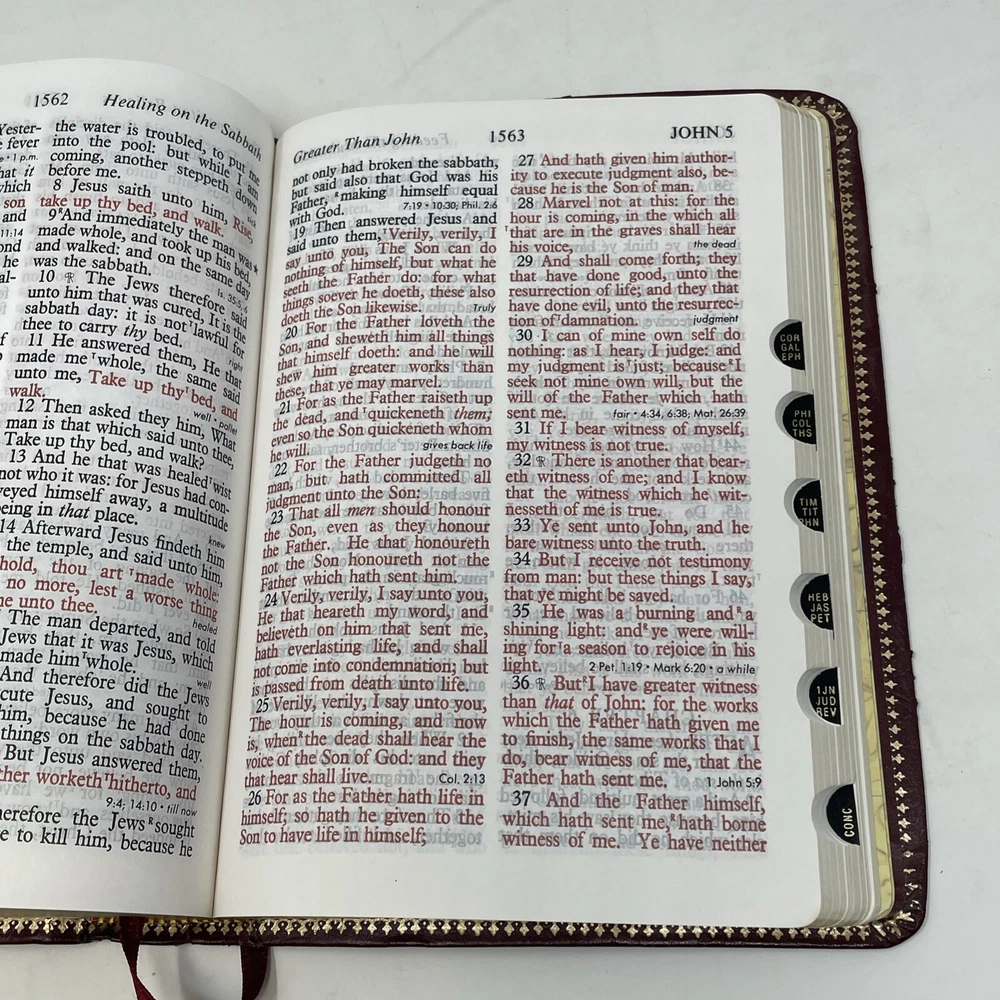 1562 Healing on the Sabbath
Yester-
fever
• 1 p.m.
hat it
which
son
and
11:14
ond
he
al-
the water is troubled, to put me
into the pool: but while I am
coming, another steppeth down
before me.
8 Jesus saith unto him, Rise,
take up thy bed, and walk. sick
9 And immediately the man was
made whole, and took up his bed,
and walked: and on the same day
was the sabbath. Is. 35:5, 6
10 ℟ The Jews therefore said
unto him that was cured, It is the
sabbath day: it is not lawful for
thee to carry thy bed. right
11 He answered them, He that
made me whole, the same said
unto me, Take up thy bed, and
walk. well • pallet
12 Then asked they him, What
man is that which said unto thee,
Take up thy bed, and walk?
13 And he that was healed wist
not who it was: for Jesus had con-
veyed himself away, a multitude
being in that place. knew
14 Afterward Jesus findeth him
the temple, and said unto him,
hold, thou art made whole:
no more, lest a worse thing
me unto thee. healed
The man departed, and told
Jews that it was Jesus, which
made him whole. well
And therefore did the Jews
cute Jesus, and sought to
him, because he had done
things on the sabbath day.
But Jesus answered them,
ther worketh hitherto, and
9:4; 14:10 • till now
herefore the Jews sought
to kill him, because he
Greater Than John 1563 JOHN 5
not only had broken the sabbath,
but said also that God was his
Father, making himself equal
with God. 7:19 • 10:30; Phil. 2:6
19 Then answered Jesus and
said unto them, Verily, verily, I
say unto you, The Son can do
nothing of himself, but what he
seeth the Father do: for what
things soever he doeth, these also
doeth the Son likewise. Truly
20 For the Father loveth the
Son, and sheweth him all things
that himself doeth: and he will
shew him greater works than
these, that ye may marvel.
21 For as the Father raiseth up
the dead, and quickeneth them;
even so the Son quickeneth whom
he will. gives back life
22 For the Father judgeth no
man, but hath committed all
judgment unto the Son:
23 That all men should honour
the Son, even as they honour
the Father. He that honoureth
not the Son honoureth not the
Father which hath sent him.
24 Verily, verily, I say unto you,
He that heareth my word, and
believeth on him that sent me,
hath everlasting life, and shall
not come into condemnation; but
is passed from death unto life.
25 Verily, verily, I say unto you,
The hour is coming, and now
is, when the dead shall hear the
voice of the Son of God: and they
that hear shall live. Col. 2:13
26 For as the Father hath life in
himself; so hath he given to the
Son to have life in himself;
27 And hath given him author-
ity to execute judgment also, be-
cause he is the Son of man.
28 Marvel not at this: for the
hour is coming, in the which all
that are in the graves shall hear
his voice, the dead
29 And shall come forth; they
that have done good, unto the
resurrection of life; and they that
have done evil, unto the resurrec-
tion of damnation. judgment
30 I can of mine own self do
nothing: as I hear, I judge: and
my judgment is just; because I
seek not mine own will, but the
will of the Father which hath
sent me. fair • 4:34, 6:38; Mat. 26:39
31 If I bear witness of myself,
my witness is not true.
32 ℟ There is another that bear-
eth witness of me; and I know
that the witness which he wit-
nesseth of me is true.
33 Ye sent unto John, and he
bare witness unto the truth.
34 But I receive not testimony
from man: but these things I say,
that ye might be saved.
35 He was a burning and a
shining light: and ye were will-
ing for a season to rejoice in his
light. 2 Pet. 1:19 • Mark 6:20 • a while
36 ℟ But I have greater witness
than that of John: for the works
which the Father hath given me
to finish, the same works that I
do, bear witness of me, that the
Father hath sent me. 1 John 5:9
37 And the Father himself,
which hath sent me, hath borne
witness of me. Ye have neither
COR
GAL
EPH
PHI
COL
THS
TIM
TIT
PHN
HEB
JAS
PET
1JN
JUD
REV
CONC